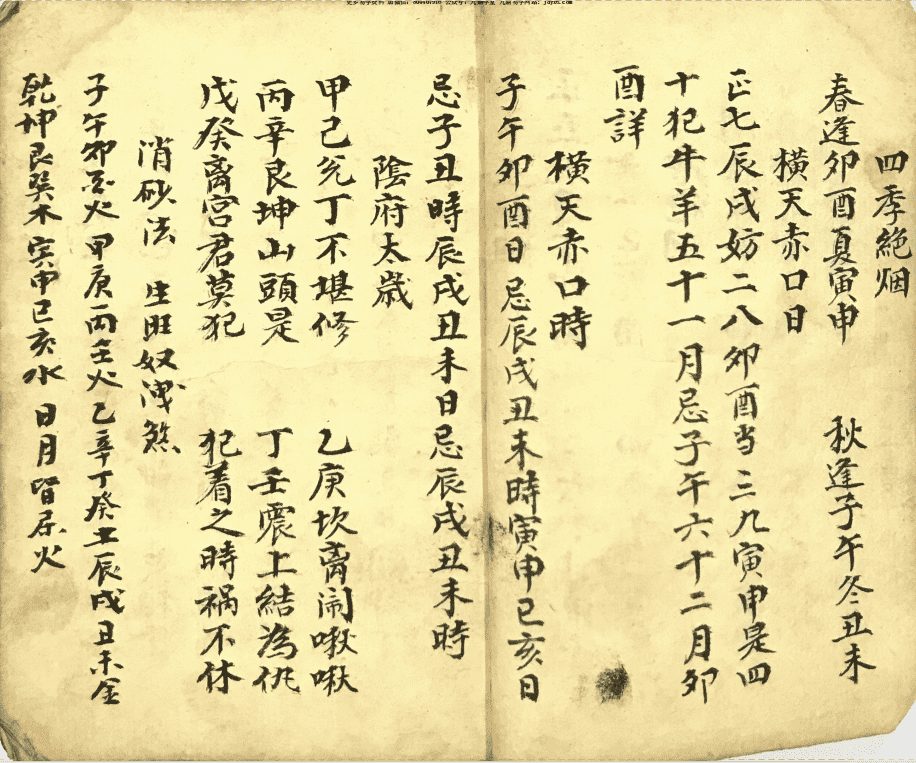 四季絶烟
春逢卯酉夏寅申 秋逢子午冬丑未
橫天赤口日
正七辰戌妨二八卯酉当三九寅申是四
十犯牛羊五十一月忌子午六十二月卯
酉詳
橫天赤口時
子午卯酉日忌辰戌丑未時寅申巳亥日
忌子丑時辰戌丑未日忌辰戌丑未時
陰府太歲
甲己兊丁不堪修 乙庚坎离闹啾啾
丙辛艮坤山頭是 丁壬震上結為仇
戊癸离宫君莫犯 犯着之時禍不休
消砂法 生旺奴洩煞
子午卯酉火甲庚丙壬火乙辛丁癸土辰戌丑未金
乾坤艮巽木寅申巳亥水日月皆属火